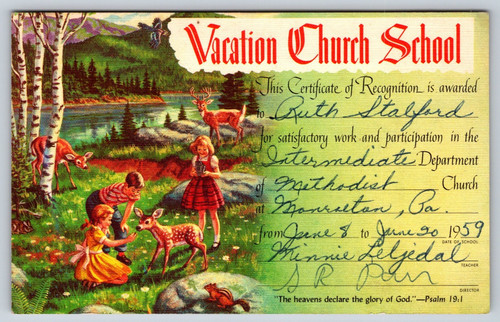 Vacation Church School
This Certificate of Recognition is awarded
to Ruth Stalford
for satisfactory work and participation in the
Intermediate Department
of Methodist Church
at Monroeton, Pa.
from June 8 to June 20 1959
DATE OF SCHOOL
Minnie Leljedal
TEACHER
S R
DIRECTOR
"The heavens declare the glory of God."—Psalm 19:1